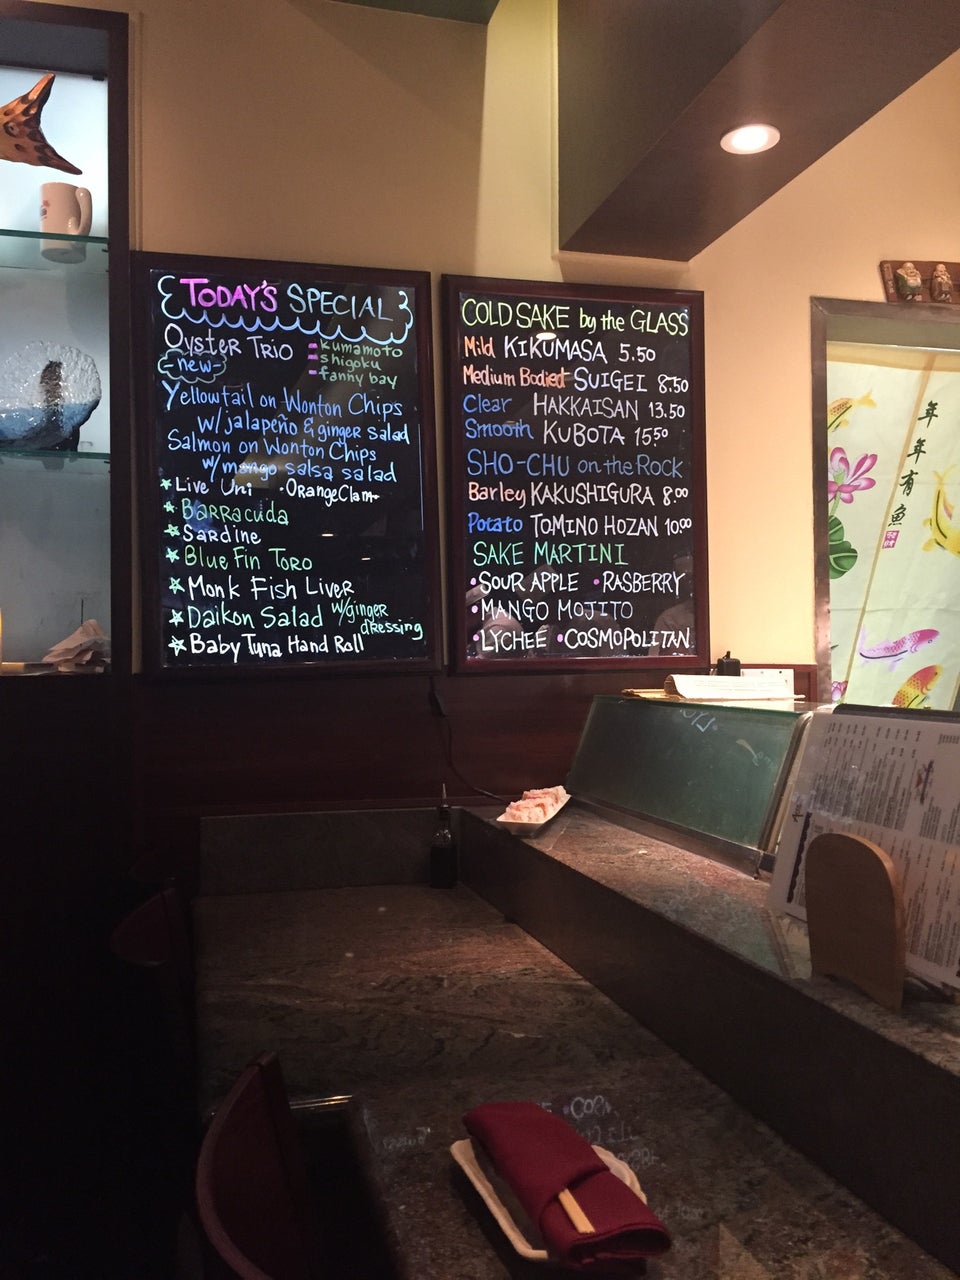 TODAY'S SPECIAL
OYSTER TRIO
- kumamoto
- shigoku
- fanny bay
-new-
Yellowtail on Wonton Chips
w/jalapeño & ginger salad
Salmon on Wonton Chips
w/mango salsa salad
Live Uni • Orange Clam
Barracuda
Sardine
Blue Fin Toro
Monk Fish Liver
Daikon Salad w/ginger
dressing
Baby Tuna Hand Roll
COLD SAKE by the GLASS
Mild KIKUMASA 5.50
Medium Bodied SUIGEI 8.50
Clear HAKKAISAN 13.50
Smooth KUBOTA 15.50
SHO-CHU on the ROCK
Barley KAKUSHIGURA 8.00
Potato TOMINO HOZAN 10.00
SAKE MARTINI
• SOUR APPLE • RASBERRY
• MANGO MOJITO
• LYCHEE • COSMOPOLITAN
年年有魚